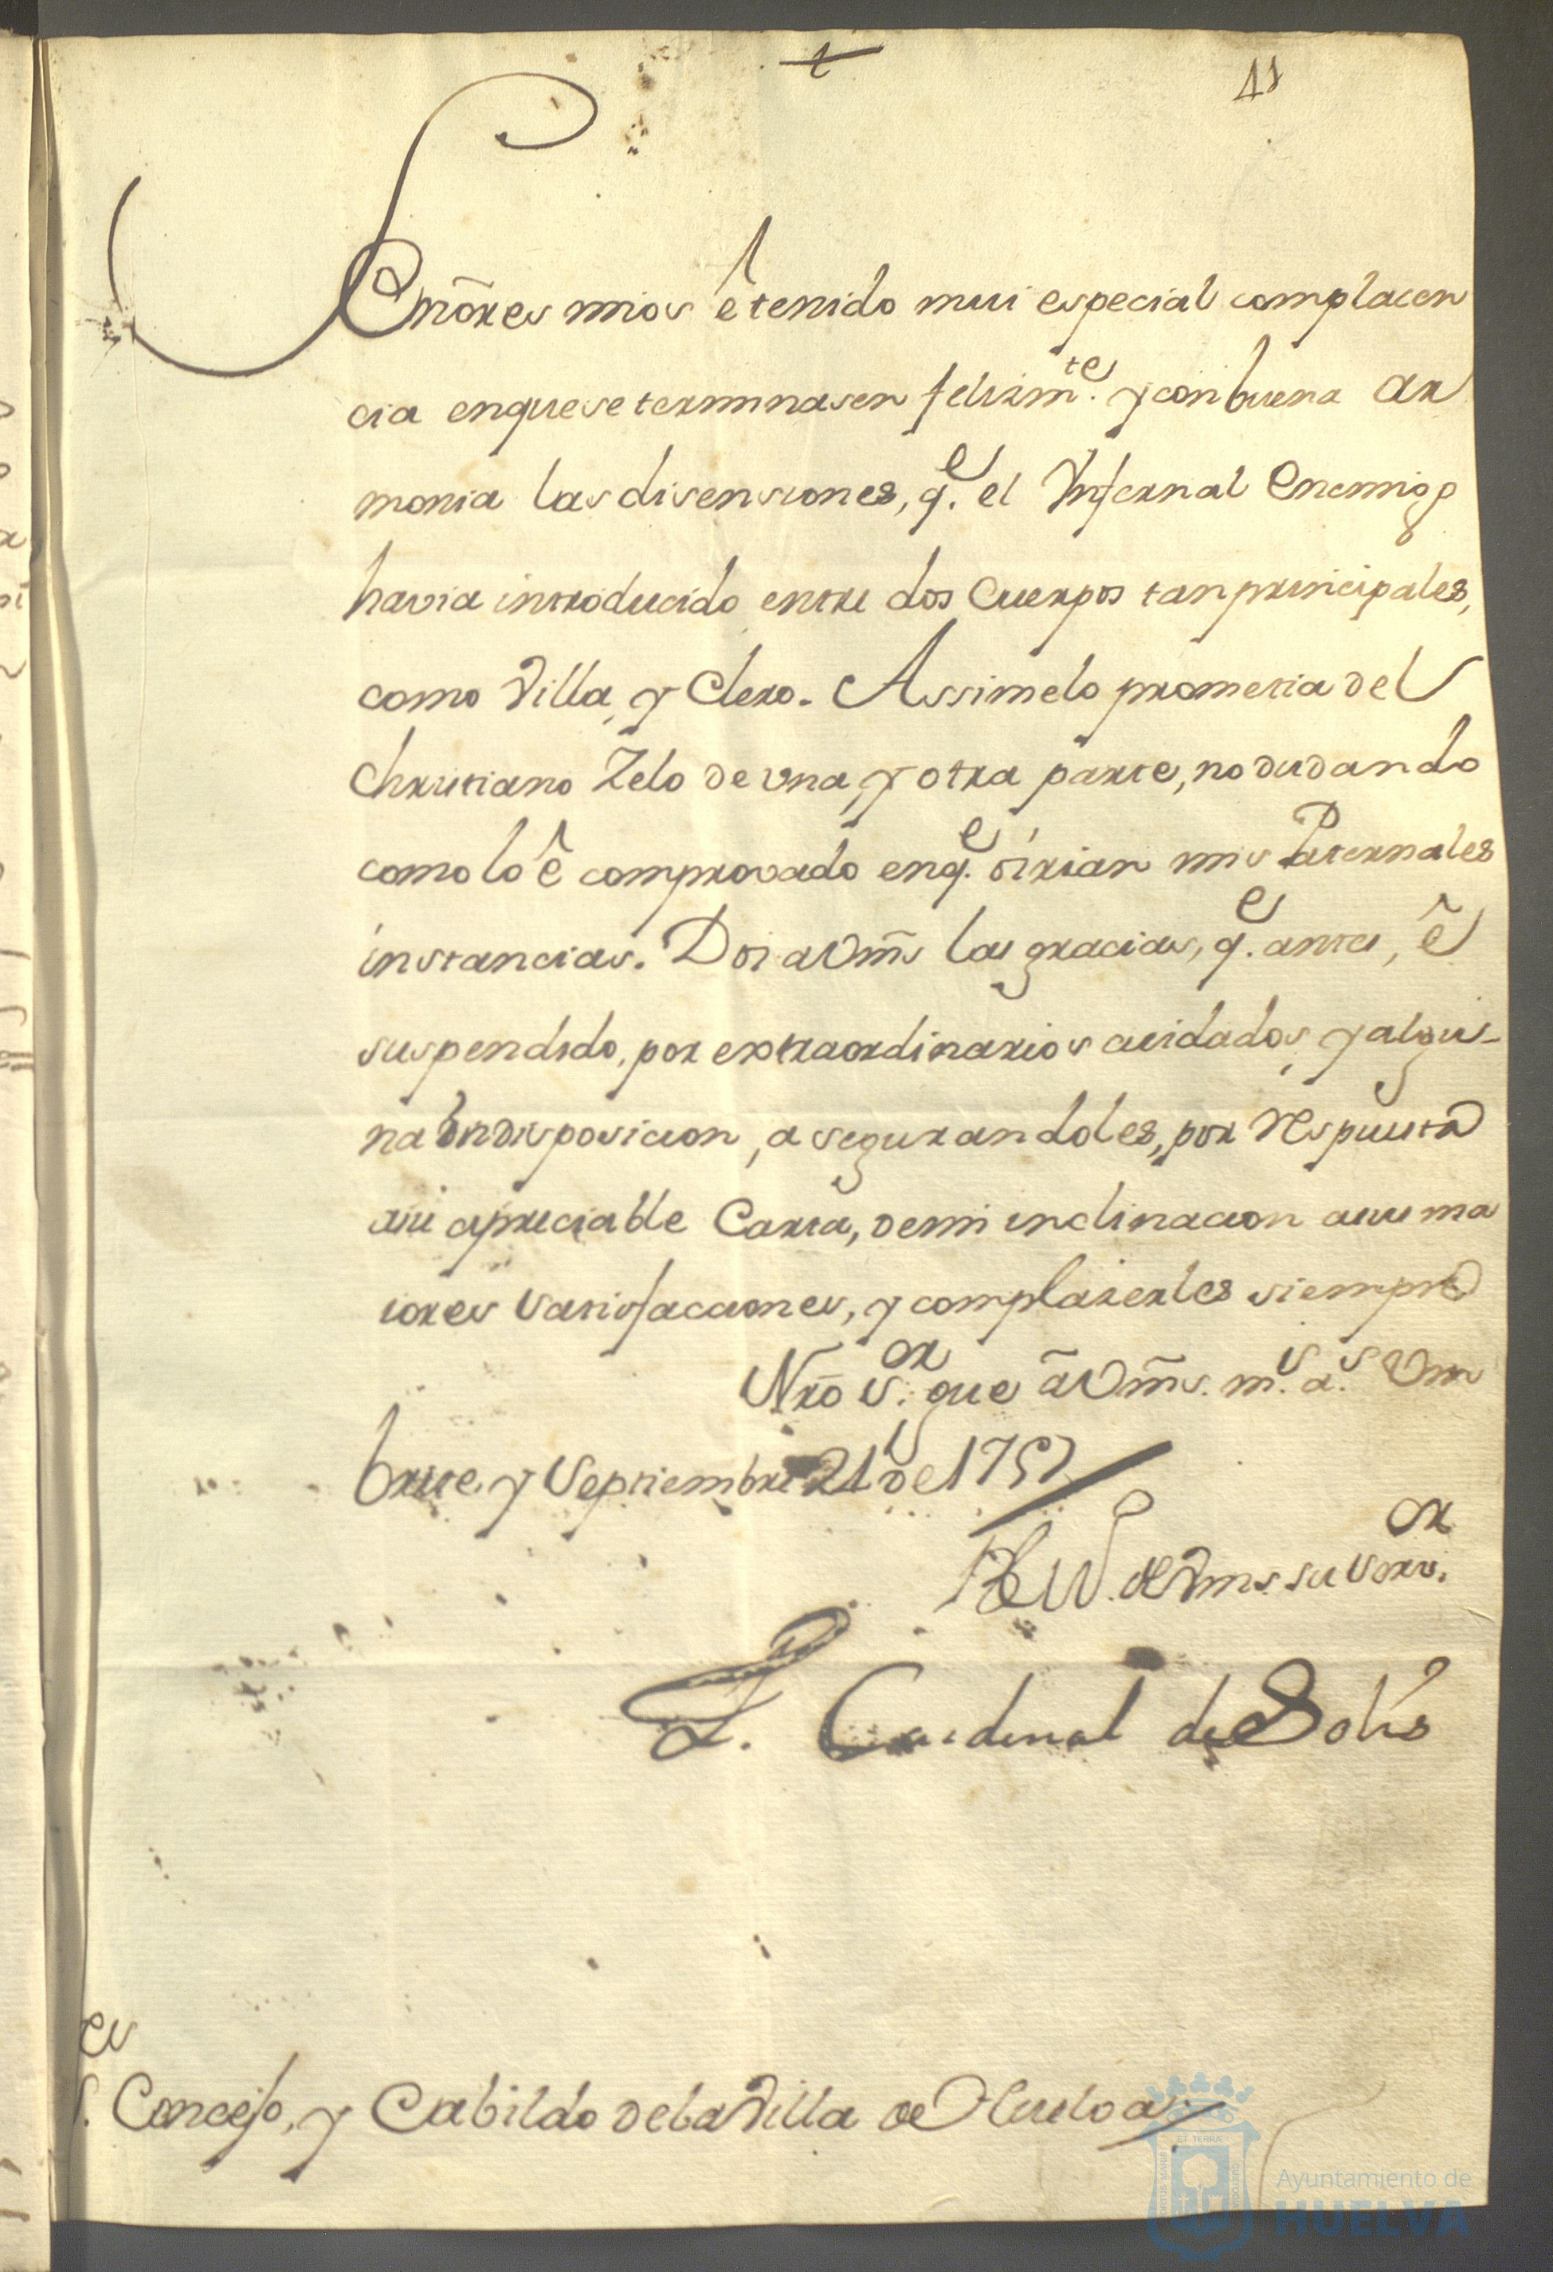 41
Señores mios ê tenido mui especial complacen
cia en que se terminasen felizmte. y con buena ar
monia las disensiones, qe. el Ynfernal Enemigo
havia introducido entre dos Cuerpos tan principales,
como Villa, y Clero. Assi me lo prometia del
Christiano Zelo de una, y otra parte, no dudando
como lo ê comprovado en qe. oírian mis Paternales
instancias. Doi a Vm̃s las gracias, qe. antes, ê
suspendido, por extraordinarios cuidados, y algu-
na Yndisposicion, asegurandoles, por respuesta
a su apreciable Carta, de mi inclinacion a sus ma
iores satisfacciones, y complazerles siempre
Nrõ Sor. gue a Vm̃s. ms. as. Um
brete, y Septiembre 21 de 1757
BLM. de Vms su Serv.or
F. Cardenal de Solís
Ses. Concejo, y Cabildo de la Villa de Huelva
Ayuntamiento de
HUELVA